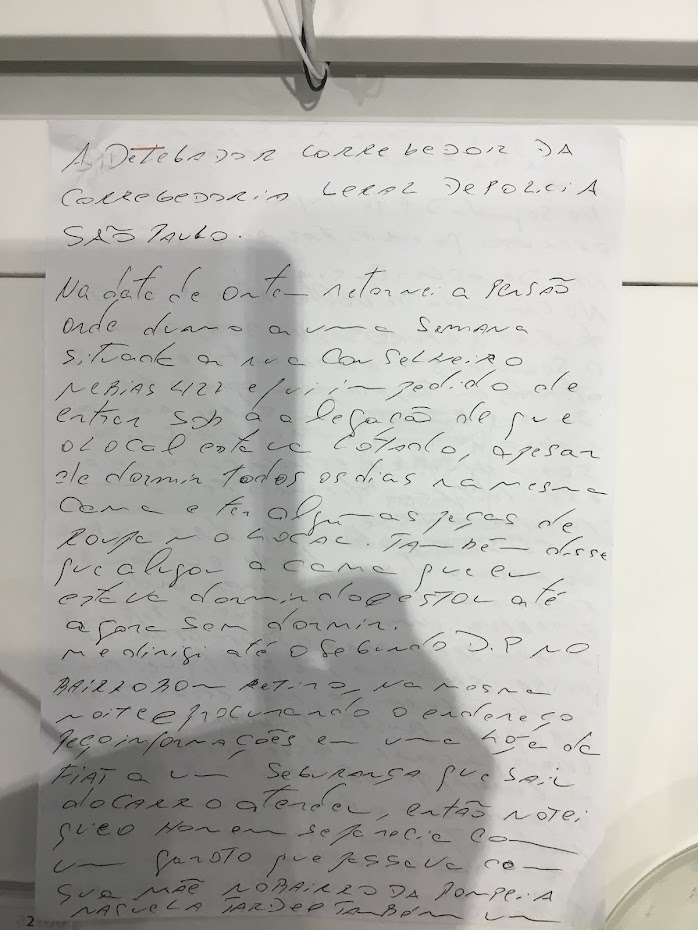 A DETEGADOR CORREGEDOR DA
CORREGEDORIA GERAL DE POLICIA
SÃO PAULO.
Na data de ontem retornei a PENSÃO
onde durmo a uma semana
situada a rua Conselheiro
NEBIAS 427 e fui impedido de
entrar sob a alegação de que
o LOCAL estava lotado, apesar
de dormir todos os dias na mesma
cama e ter algumas peças de
roupa no LOCAL. TAMBÉM disse
que alugou a cama que eu
estava dormindo e ESTOU até
agora sem dormir.
me dirigi até o SEGUNDO D.P NO
BAIRRO BOM RETIRO, na mesma
noite e procurando o endereço
peço informações em uma loja da
FIAT a um SEGURANÇA que sai
do CARRO atender, então NOTEI
que o Homem se parecia com
um garoto que passava com
sua MÃE NO BAIRRO DA POMPEIA
NAQUELA TARDE E TAMBÉM um
2